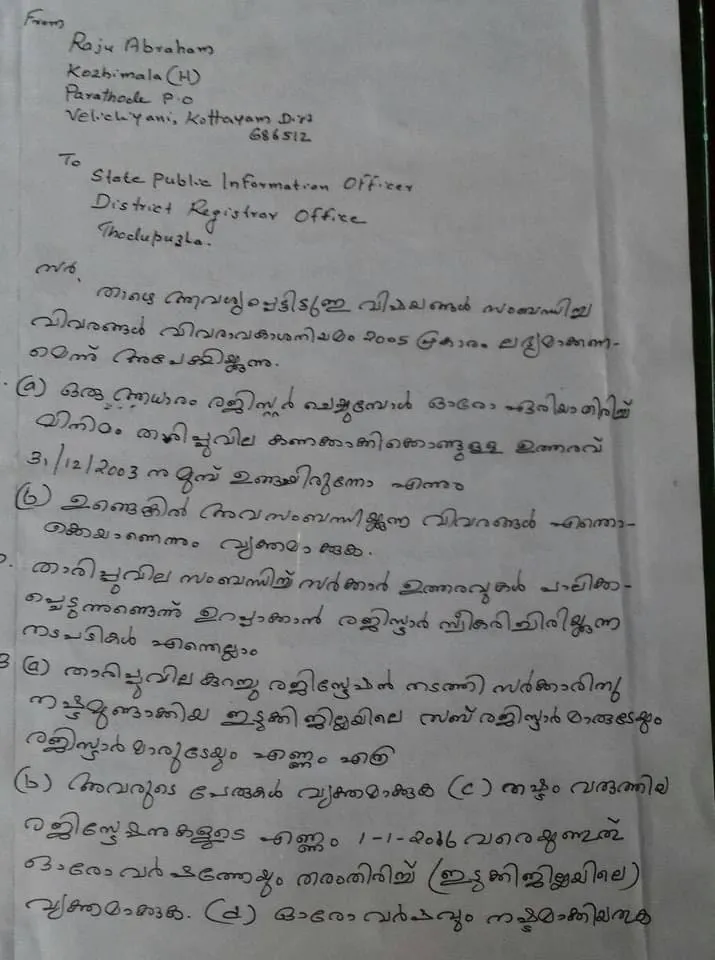 From
Raju Abraham
Kozhimala (H)
Parathode P.O
Velichiyani, Kottayam Dist
686512
To
State Public Information Officer
District Registrar Office
Thodupuzha.
സർ,
താഴെ ആവശ്യപ്പെട്ടിട്ടുള്ള വിഷയങ്ങൾ സംബന്ധിച്ച
വിവരങ്ങൾ വിവരാവകാശനിയമം 2005 പ്രകാരം ലഭ്യമാക്കണ-
മെന്ന് അപേക്ഷിക്കുന്നു.
(a) ഒരു ആധാരം രജിസ്റ്റർ ചെയ്യുമ്പോൾ ഓരോ ഏരിയാതിരിച്ച്
മിനിമം തറിപ്പുവില കണക്കാക്കിക്കൊണ്ടുള്ള ഉത്തരവ്
31/12/2003 നു മുമ്പ് ഉണ്ടായിരുന്നോ എന്നും
(b) ഉണ്ടെങ്കിൽ അവ സംബന്ധിക്കുന്ന വിവരങ്ങൾ എന്തൊ-
ക്കെയാണെന്നും വ്യക്തമാക്കുക.
താരിപ്പുവില സംബന്ധിച്ച് സർക്കാർ ഉത്തരവുകൾ പാലിക്ക-
പ്പെടുന്നുണ്ടെന്ന് ഉറപ്പാക്കാൻ രജിസ്ട്രാർ സ്വീകരിച്ചിരിക്കുന്ന
നടപടികൾ എന്തെല്ലാം
3 (a) താരിപ്പുവില കുറച്ചു രജിസ്ട്രേഷൻ നടത്തി സർക്കാരിനു
നഷ്ടമുണ്ടാക്കിയ ഇടുക്കി ജില്ലയിലെ സബ് രജിസ്ട്രാർമാരുടേയും
രജിസ്ട്രാർമാരുടേയും എണ്ണം എത്ര
(b) അവരുടെ പേരുകൾ വ്യക്തമാക്കുക (c) നഷ്ടം വരുത്തിയ
രജിസ്ട്രേഷനുകളുടെ എണ്ണം 1-1-2016 വരെയുള്ളത്
ഓരോ വർഷത്തേയും തരംതിരിച്ച് (ഇടുക്കിജില്ലയിലെ)
വ്യക്തമാക്കുക. (d) ഓരോ വർഷവും നഷ്ടമാക്കിയതുക